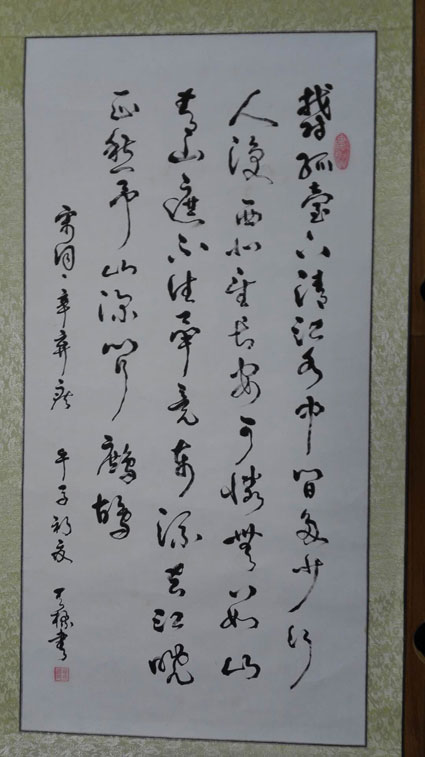 鬱孤臺下清江水中間多少行
人淚西北望長安可憐無數山
青山遮不住畢竟東流去江晚
正愁予山深聞鷓鴣
宋词·辛弃疾 子初夏 书